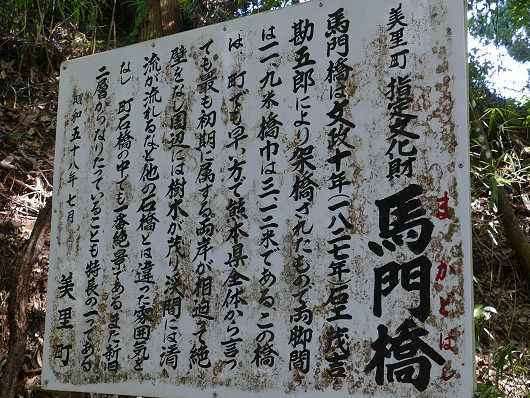 美里町 指定文化財
馬門橋
まかどばし
馬門橋は文政十年(一八二七年)石工 茂吉
勘五郎により架橋されたもので両脚間
は二、九米橋巾は三、三米である。この橋
は、町でも早い方で熊本県全体から言っ
ても最も初期に属する両岸が相迫って絶
壁をなし周辺には樹木が茂り渓間には清
流が流れるなど他の石橋とは違った雰囲気を
なし、町石橋の中でも一番絶景であるまた新旧
二層からなりたっていることも特長の一つである
昭和五十八年 七月
美里町